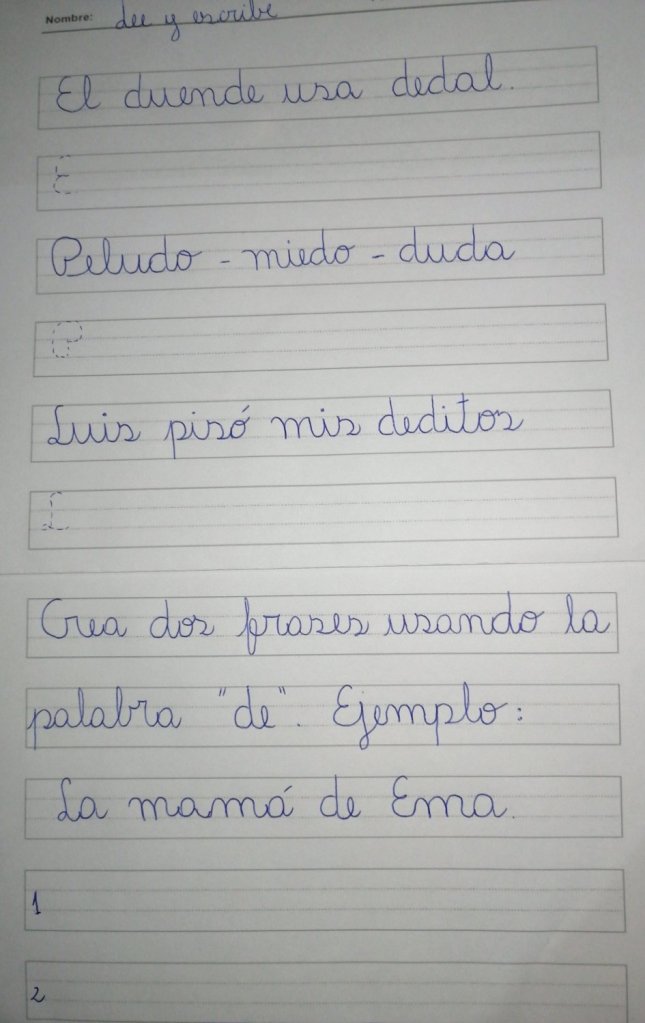 Nombre: Lee y escribe
El duende usa dedal.
E
Peludo - miedo - duda
P
Luis pisó mis deditos
L
Crea dos frases usando la
palabra "de". Ejemplo:
La mamá de Ema.
1
2